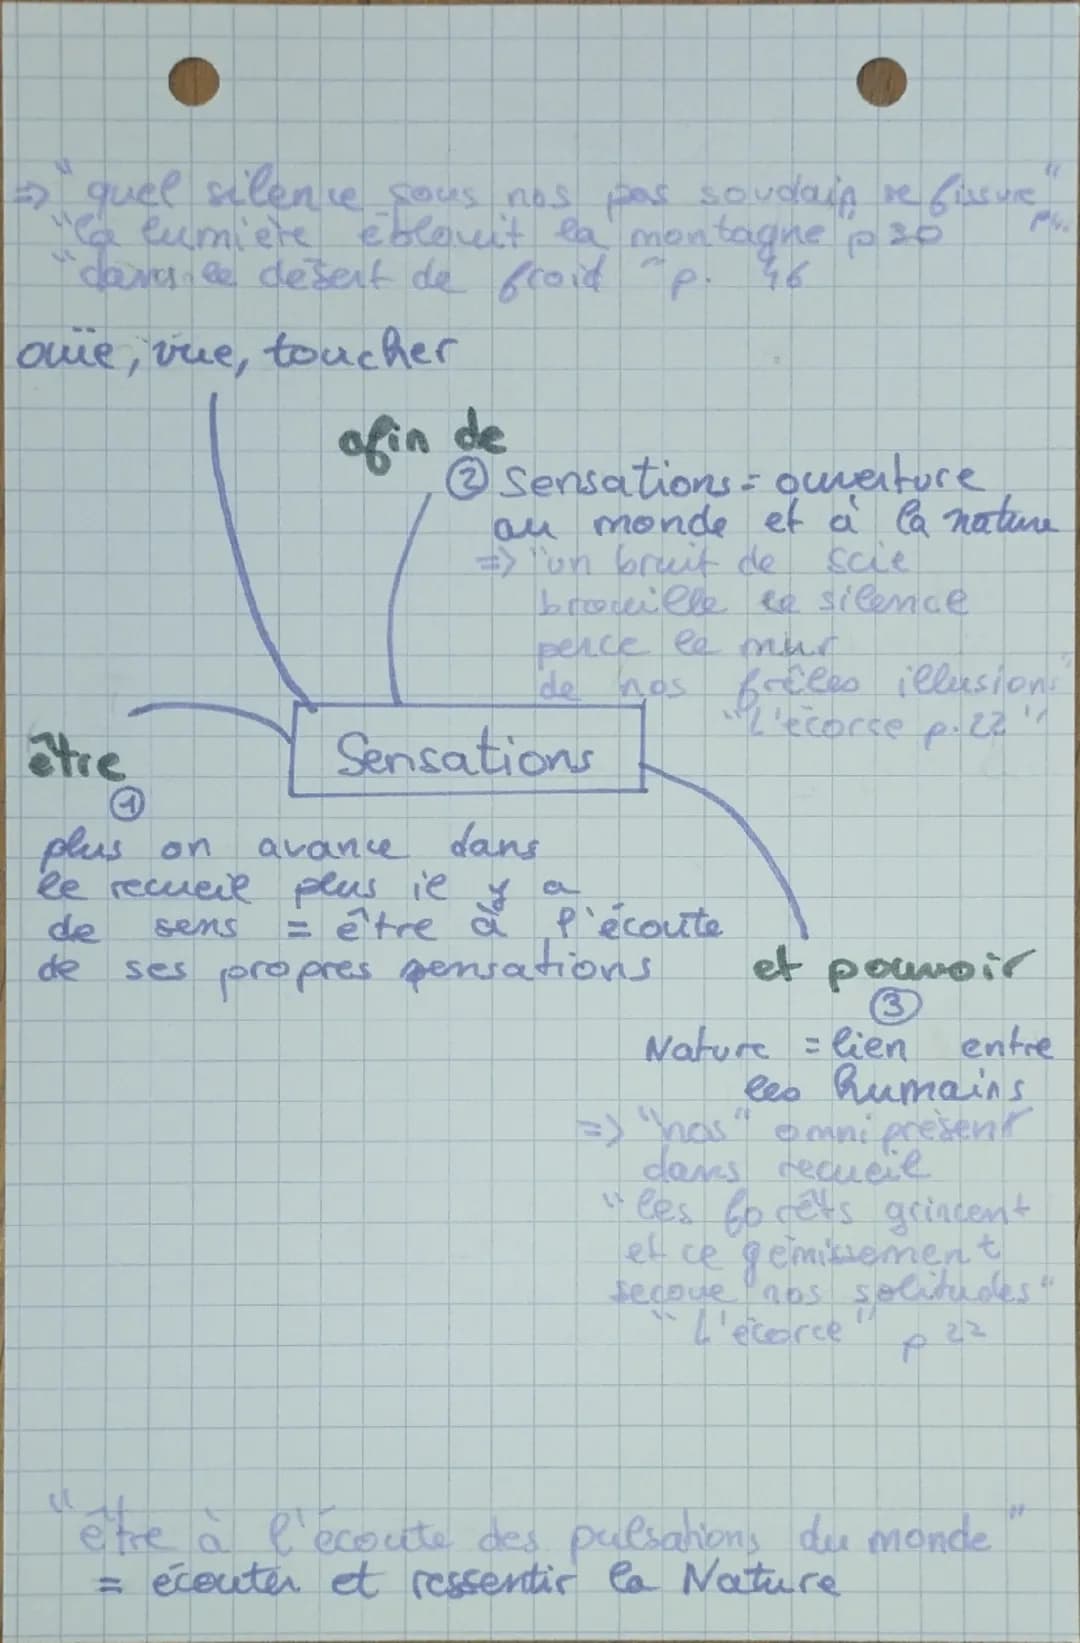 => "quel silence sous nos pas soudain se fissure"
"la lumière éblouit la montagne" p 30
"dans le désert de froid" p. 46
ouïe, vue, toucher
afin de
② Sensations = ouverture
au monde et à la nature
=> "un bruit de scie
brouille le silence
perce le mur
de nos frêles illusions"
"L'écorce p.22"
Sensations
être
①
plus on avance dans
le recueil plus il y a
de sens = être à l'écoute
de ses propres sensations
et pouvoir
③
Nature = lien entre
les humains
=> "nos" omniprésent
dans recueil
"les forêts grincent
et ce gémissement
secoue nos solitudes"
"L'écorce" p 22
"être à l'écoute des pulsations du monde"
= écouter et ressentir la Nature